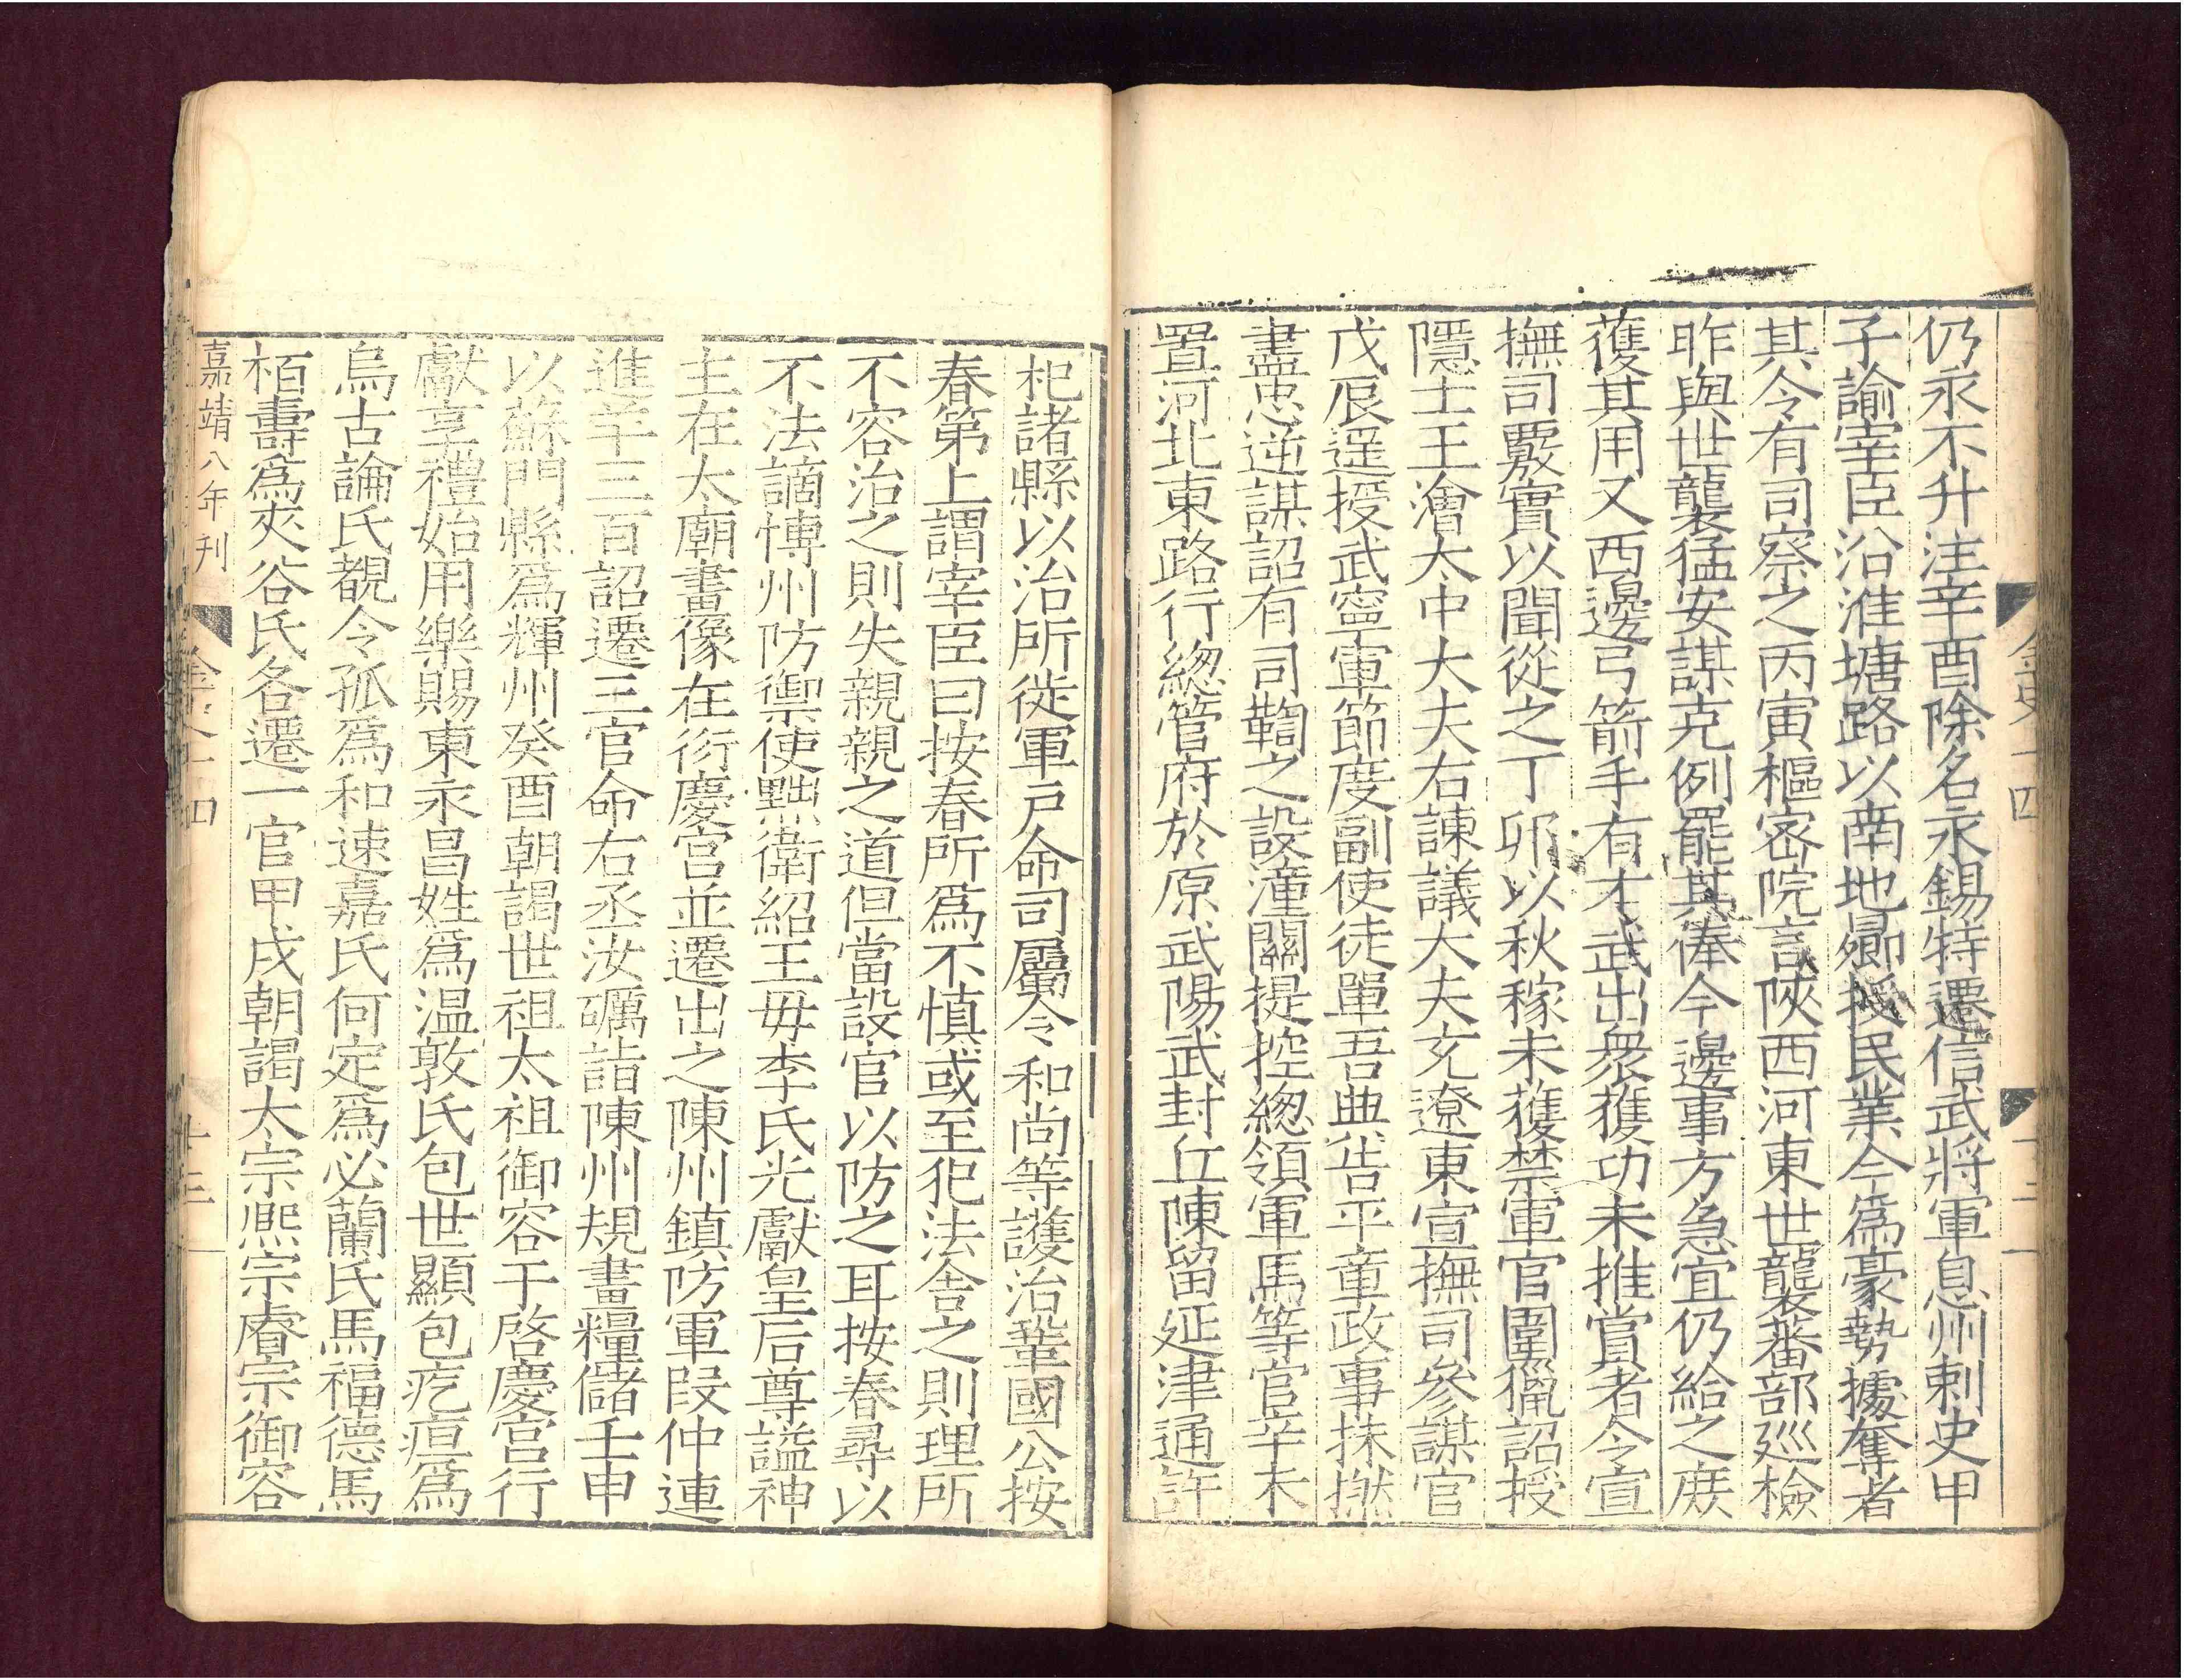 仍永不升注辛酉除名永錫特遷信武將軍息州刺史甲
子諭宰臣沿淮塘路以南地鄉授民業今為豪勢據奪者
其令有司察之丙寅樞密院言陝西河東世襲蕃部巡檢
昨與世襲猛安謀克例罷其俸今邊事方急宜仍給之庶
獲其用又西邊弓箭手有才武出衆獲功未推賞者令宣
撫司覈實以聞從之丁卯以秋稼未穫禁軍官圍獵詔授
隱士王澮太中大夫右諫議大夫充遼東宣撫司參謀官
戊辰遥授武寧軍節度副使徒單吾典告平章政事抹撚
盡忠逆謀詔有司鞫之設潼關提控總領軍馬等官辛未
置河北東路行緫管府於原武陽武封丘陳留延津通許
金史十四
杞諸縣以治所徙軍戶命司屬令和尚等護治鞏國公按
春第上謂宰臣曰按春所爲不慎或至犯法舍之則理所
不容治之則失親親之道但當設官以防之耳按春尋以
不法謫愽州防禦使黜衛紹王毋李氏光獻皇后尊謚神
主在太廟畫像在衍慶宮並遷出之陳州鎮防軍叚仲連
進羊三百詔遷三官命右丞汝礪詣陳州規畫糧儲壬申
以蘇門縣爲輝州癸酉朝謁世祖太祖御容于啓慶宮行
獻享禮始用樂賜東永昌姓爲温敦氏包世顯包疙疸爲
烏古論氏覩令孤爲和速嘉氏何定爲必蘭氏馬福德馬
栢壽爲夾谷氏各遷一官甲戌朝謁太宗熈宗睿宗御容
嘉靖八年刊
金史十四
十三